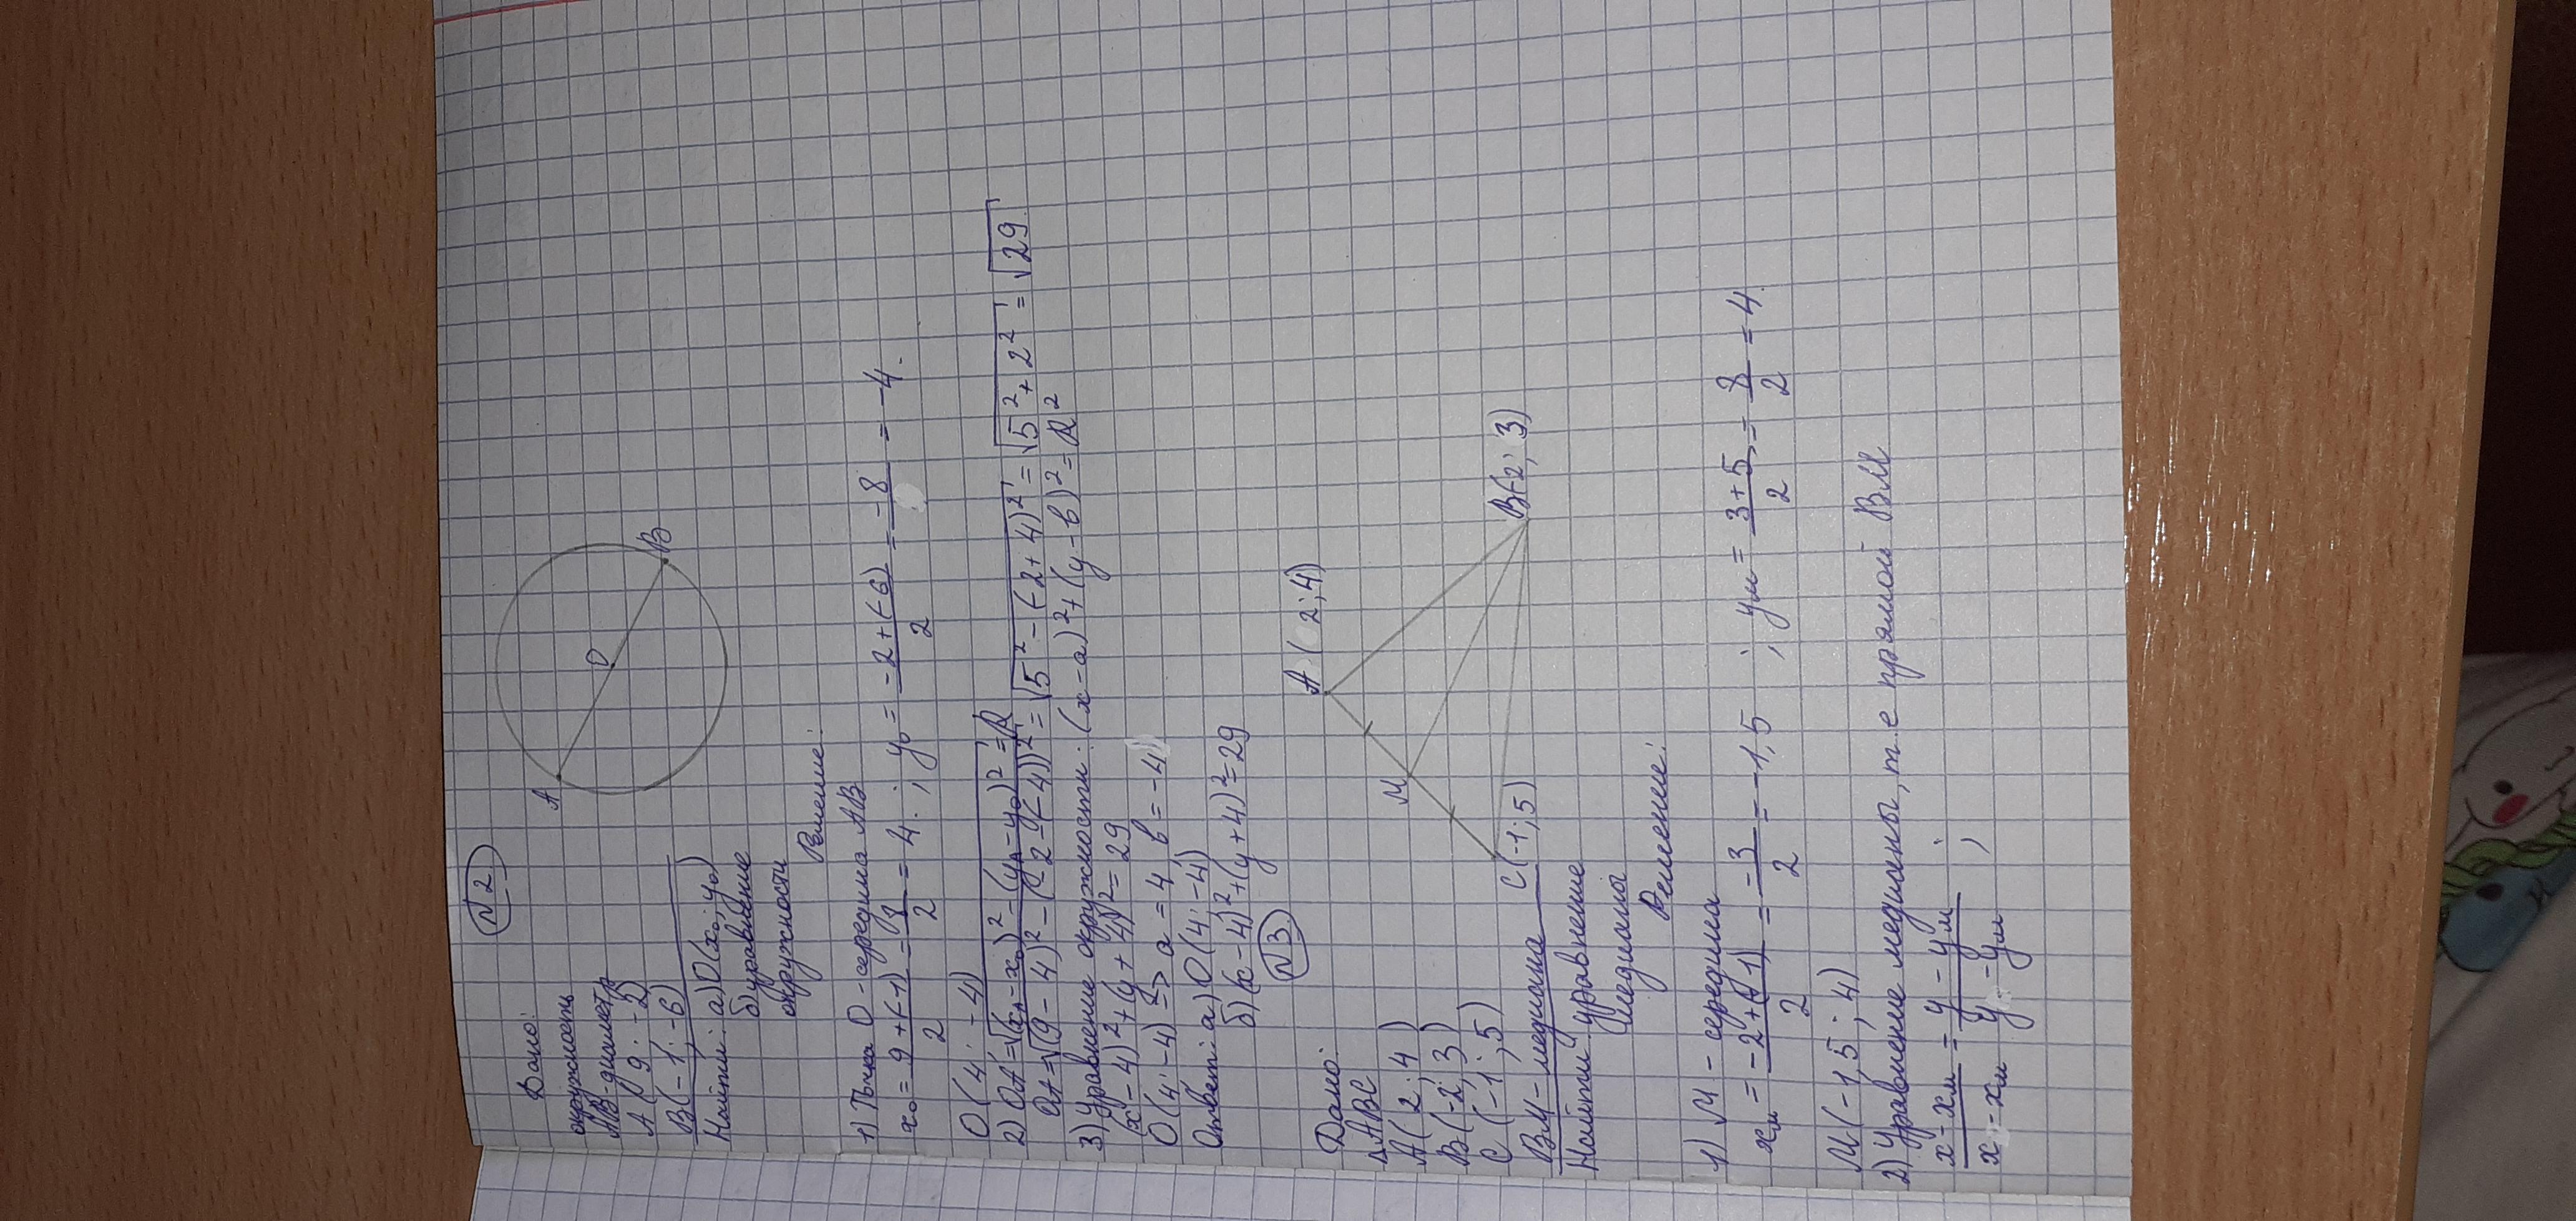 N2
Дано:
окружность
АВ-диаметр
А(9; -2)
В(-1; -6)
Найти: а) О(x₀; y₀)
б) уравнение
окружности
А
О
В
Решение:
1) Точка О - середина АВ
x₀ = (9+(-1))/2 = 8/2 = 4. ; y₀ = (-2+(-6))/2 = -8/2 = -4.
О(4; -4)
2) ОА = √((x_A - x₀)² - (y_A - y₀)²) = R
ОА = √((9-4)² - (-2-(-4))²) = √(5² - (-2+4)²) = √(5² + 2²) = √29
3) Уравнение окружности: (x-a)² + (y-в)² = R²
(x-4)² + (y+4)² = 29
О(4; -4) => a = 4 в = -4
Ответ: а) О(4; -4)
б) (x-4)² + (y+4)² = 29
N3
Дано:
ΔАВС
А(2; 4)
В(-2; 3)
С(-1; 5)
ВМ - медиана
Найти: уравнение
медианы
А(2; 4)
М
В(-2; 3)
С(-1; 5)
Решение:
1) М - середина
x_м = (-2+(-1))/2 = -3/2 = -1,5 ; y_м = (3+5)/2 = 8/2 = 4.
М(-1,5; 4)
2) Уравнение медианы, т.е прямой ВМ
(x - x_м)/(x - x_м) = (y - y_м)/(y - y_м) ;